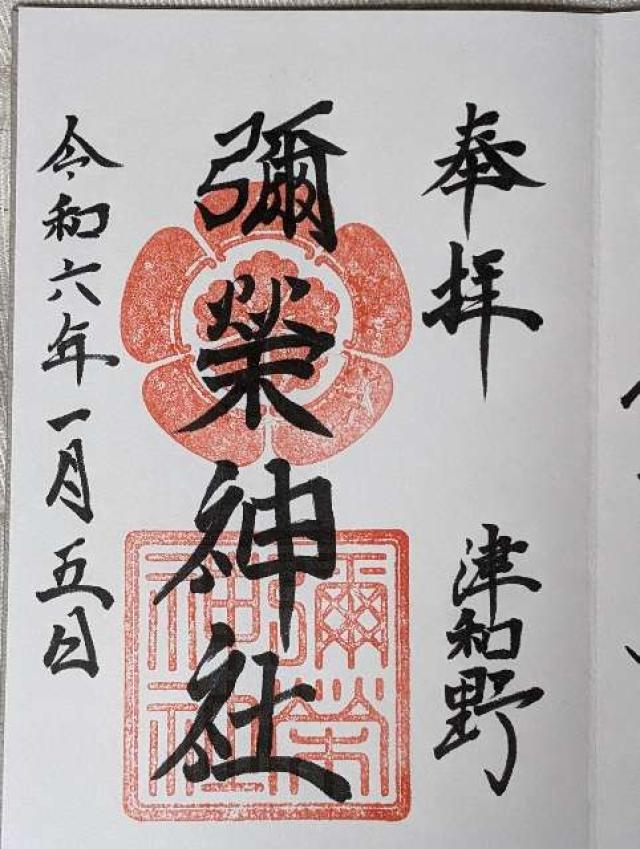 奉拝
津和野
彌榮神社
彌榮神社
令和六年一月五日